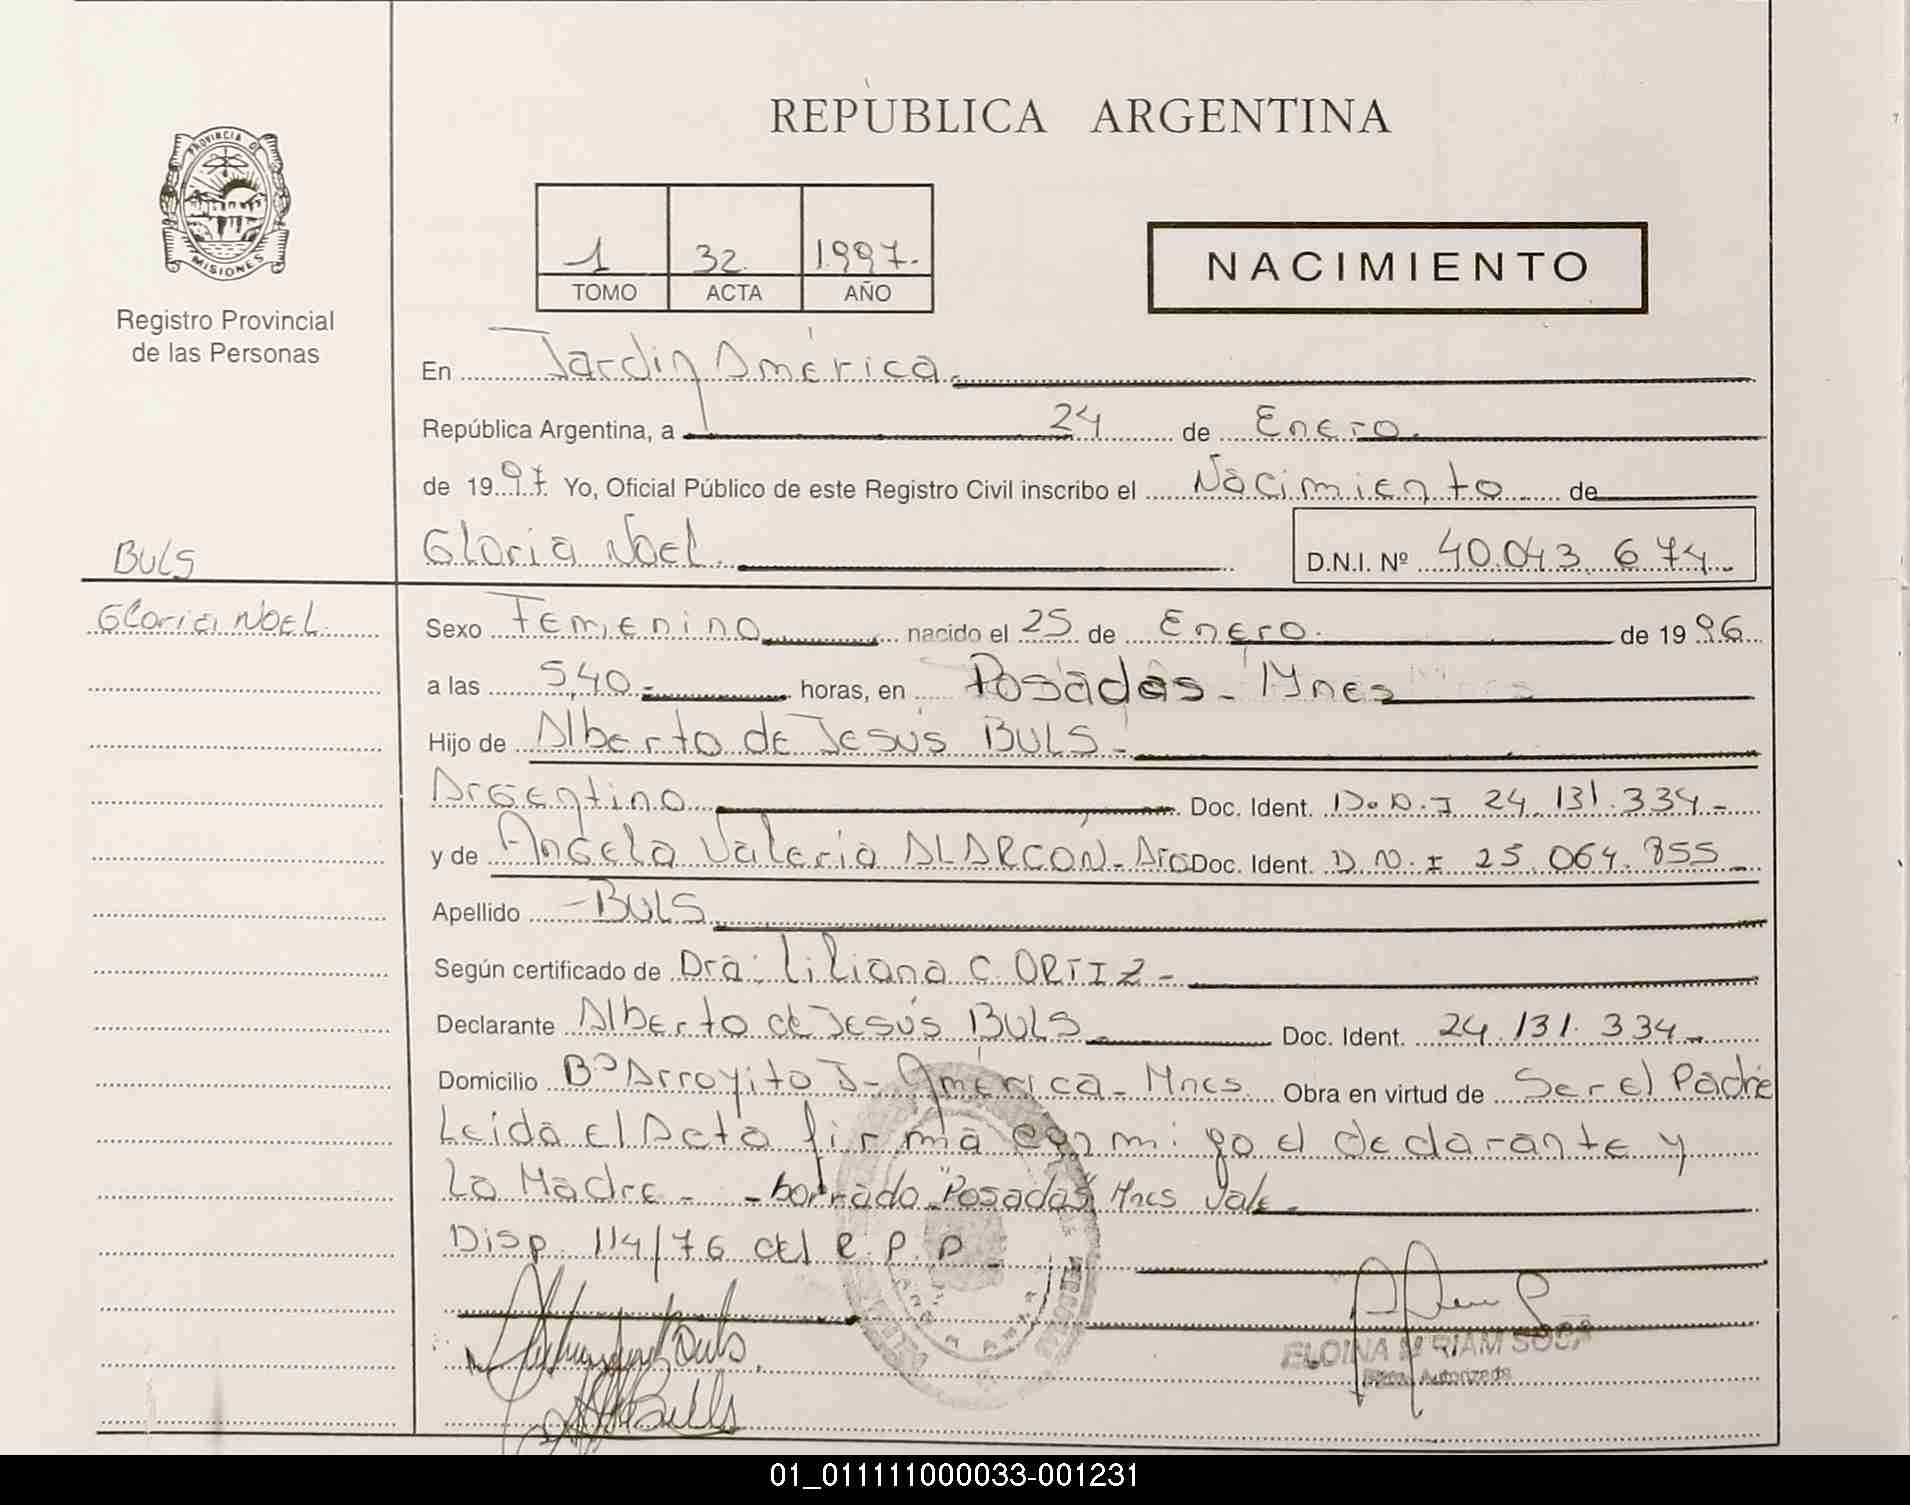 REPÚBLICA ARGENTINA
PROVINCIA DE
MISIONES
Registro Provincial
de las Personas
1 32 1.997.
TOMO ACTA AÑO
NACIMIENTO
En Jardin América.
República Argentina, a 24 de Enero.
de 1997. Yo, Oficial Público de este Registro Civil inscribo el Nacimiento de
BULS
Gloria Noel. D.N.I. Nº 40.043.674.
Gloria NoEL.
Sexo Femenino nacido el 25 de Enero. de 1996
a las 5,40 - horas, en Posadas - Mnes
Hijo de Alberto de Jesús BULS -
Argentino Doc. Ident. D.N.I 24.131.334 -
y de Angela Valeria ALARCÓN - Arg Doc. Ident. D.N.I 25.064.855
Apellido - BULS
Según certificado de Dra. Liliana C. ORTIZ -
Declarante Alberto de Jesús BULS Doc. Ident. 24.131.334
Domicilio Bº Arroyito J- América - Mnes. Obra en virtud de Ser el Padre
Leida el Acta firma conmigo el declarante y
La Madre - - borrado "Posadas" Mnes Vale -
Disp. 114/76 del R.P.P
Buls
ELOINA MIRIAM SOSA
Autorizada
01_011111000033-001231